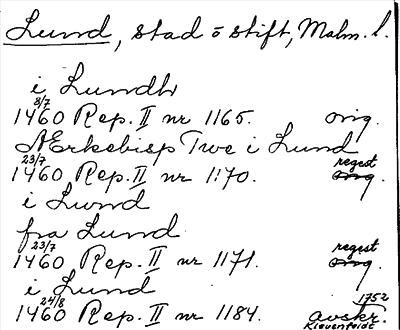 Lund, stad o stift, Malm. l.
i Lundh
8/7
1460 Rep. II nr 1165. orig.
Ærkebisp Twe i Lund
23/7 regest
1460 Rep. II nr 1170. orig.
i Lwnd
fra Lund
23/7 regest
1460 Rep. II nr 1171. orig.
i Lund
24/8 1752
1460 Rep. II nr 1184. avskr.
Klevenfeldt